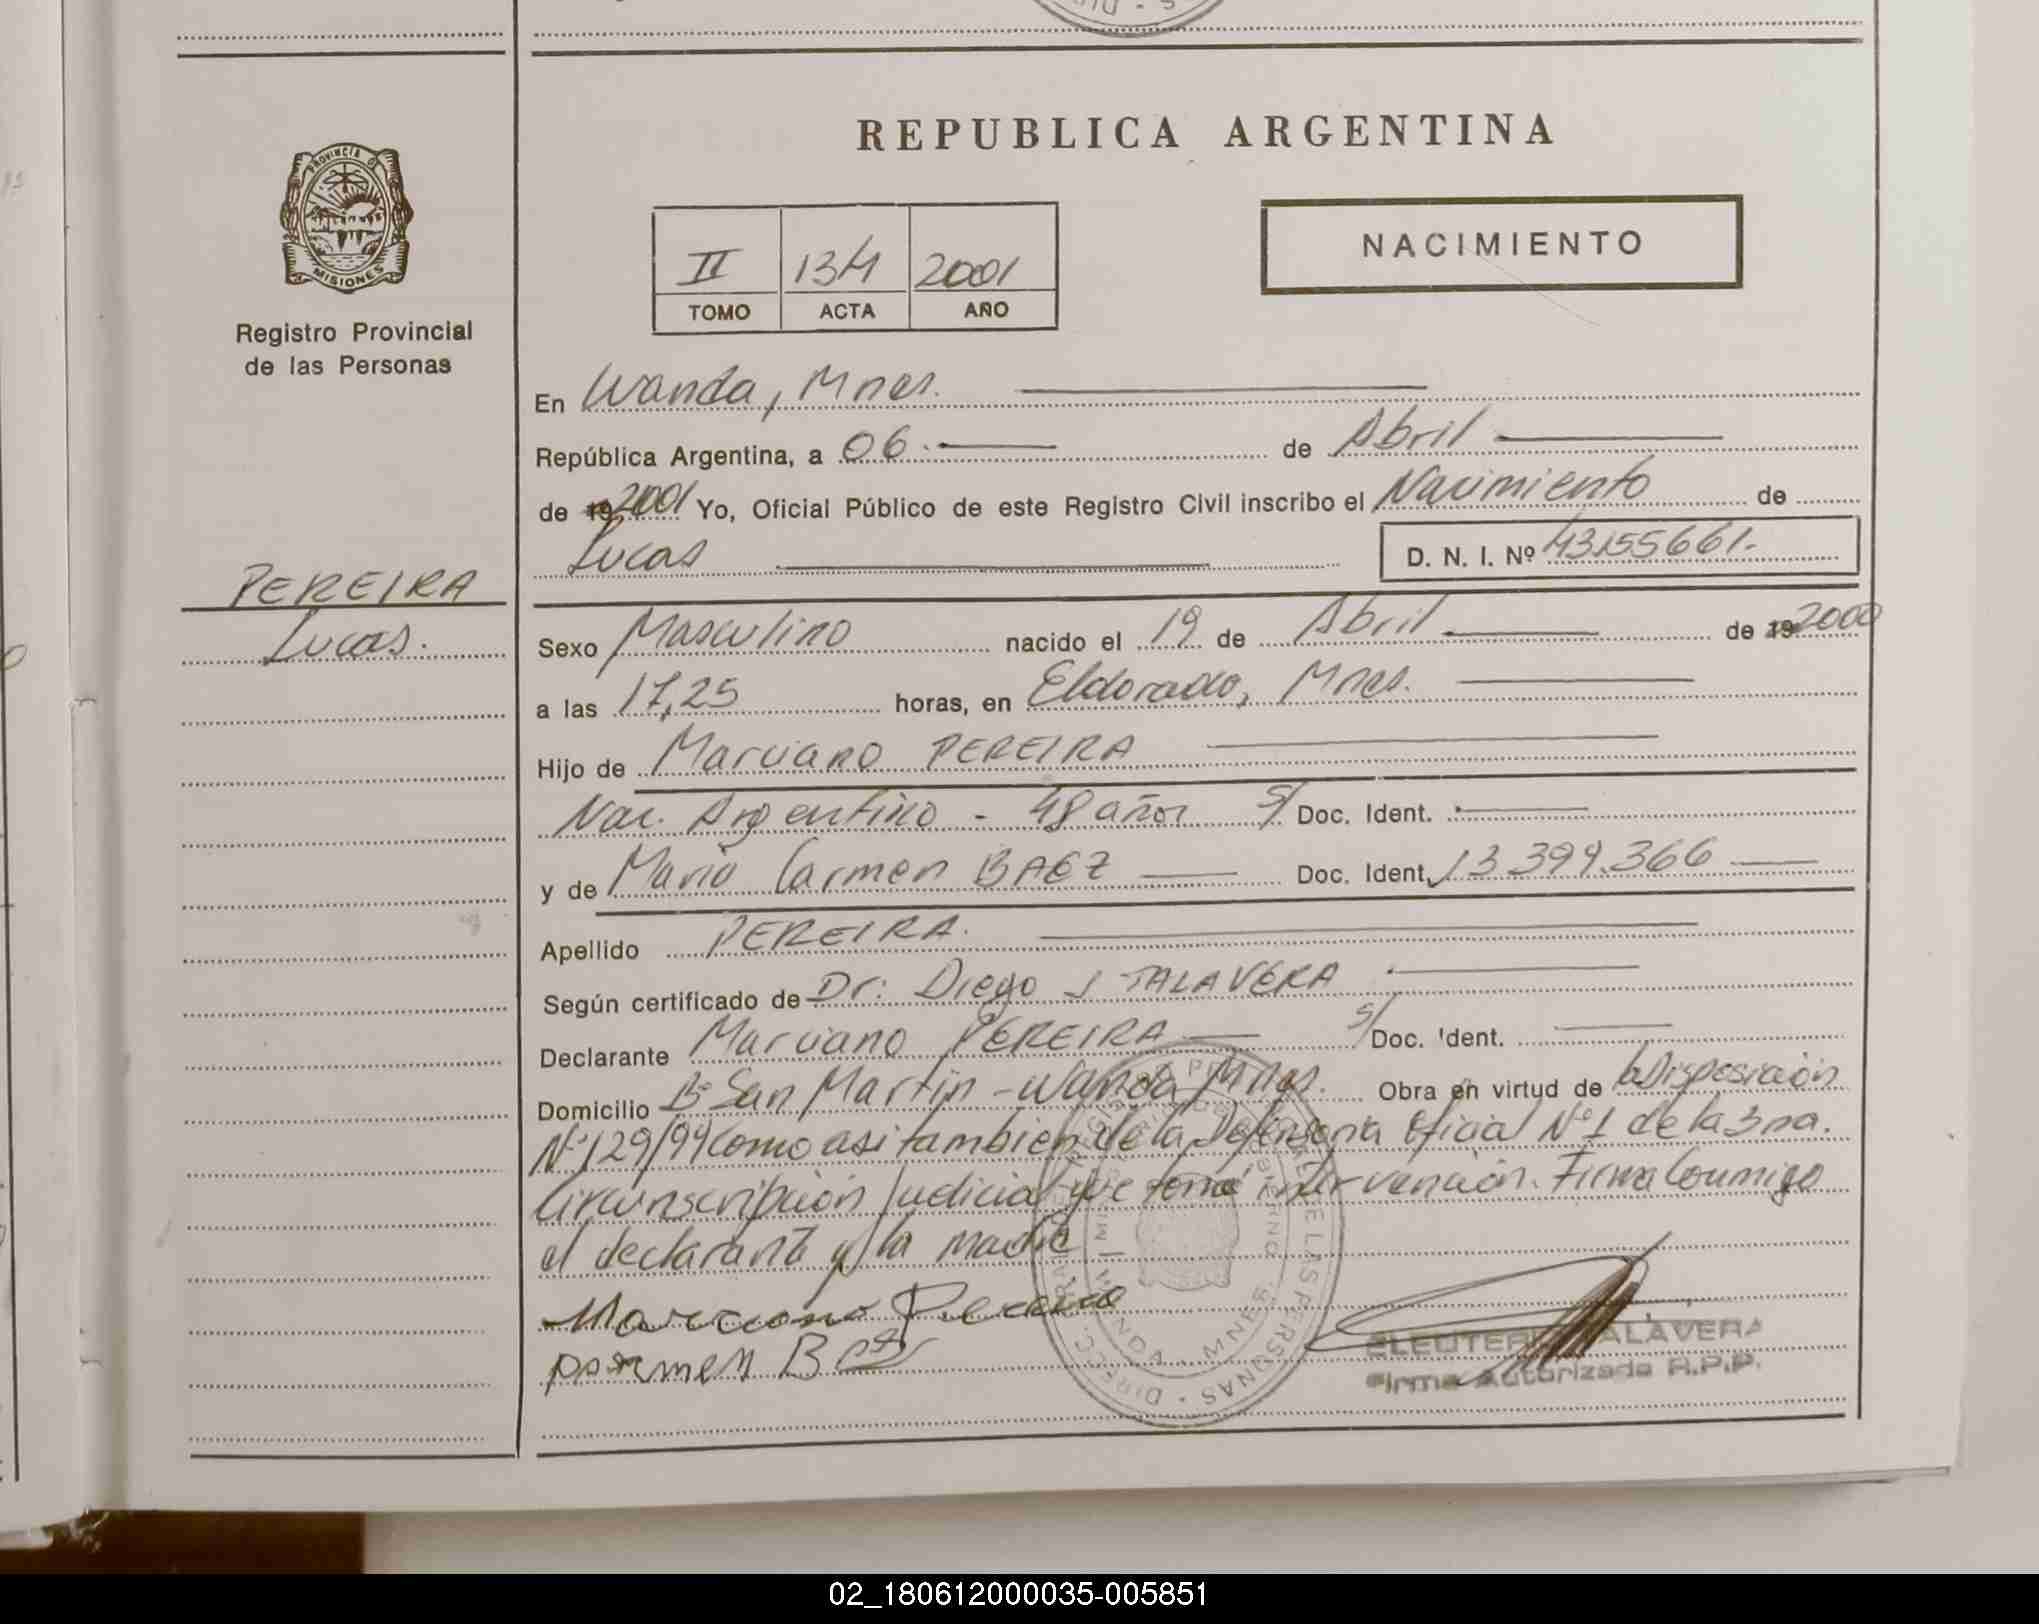 REPUBLICA ARGENTINA
PROVINCIA D
MISIONES
Registro Provincial
de las Personas
NACIMIENTO
II 134 2001
TOMO ACTA AÑO
En Wanda, Mnes.
República Argentina, a 06.- de Abril
de 19 2001 Yo, Oficial Público de este Registro Civil inscribo el Nacimiento de
Lucas D. N. I. Nº 43155661.
PEREIRA
Lucas.
Sexo Masculino nacido el 19 de Abril de 19 2000
a las 17,25 horas, en Eldorado, Mnes.
Hijo de Marciano PEREIRA
Nac. Argentino - 48 años S/ Doc. Ident.
y de María Carmen BAEZ Doc. Ident. 13 399.366
Apellido PEREIRA.
Según certificado de Dr: Diego J TALAVERA
Declarante Marciano PEREIRA S/ Doc. Ident.
Domicilio Bº San Martín - Wanda Mnes. Obra en virtud de la Disposición
Nº 129/94 como asi tambien de la Defensoria Oficial Nº 1 de la 3 ra.
Circunscripción Judicial que tomó intervención. Firma Conmigo
el declarante y la madre
Marciano Pereira
ELEUTERIO TALAVERA
Firma Autorizada R.P.P.
02_180612000035-005851